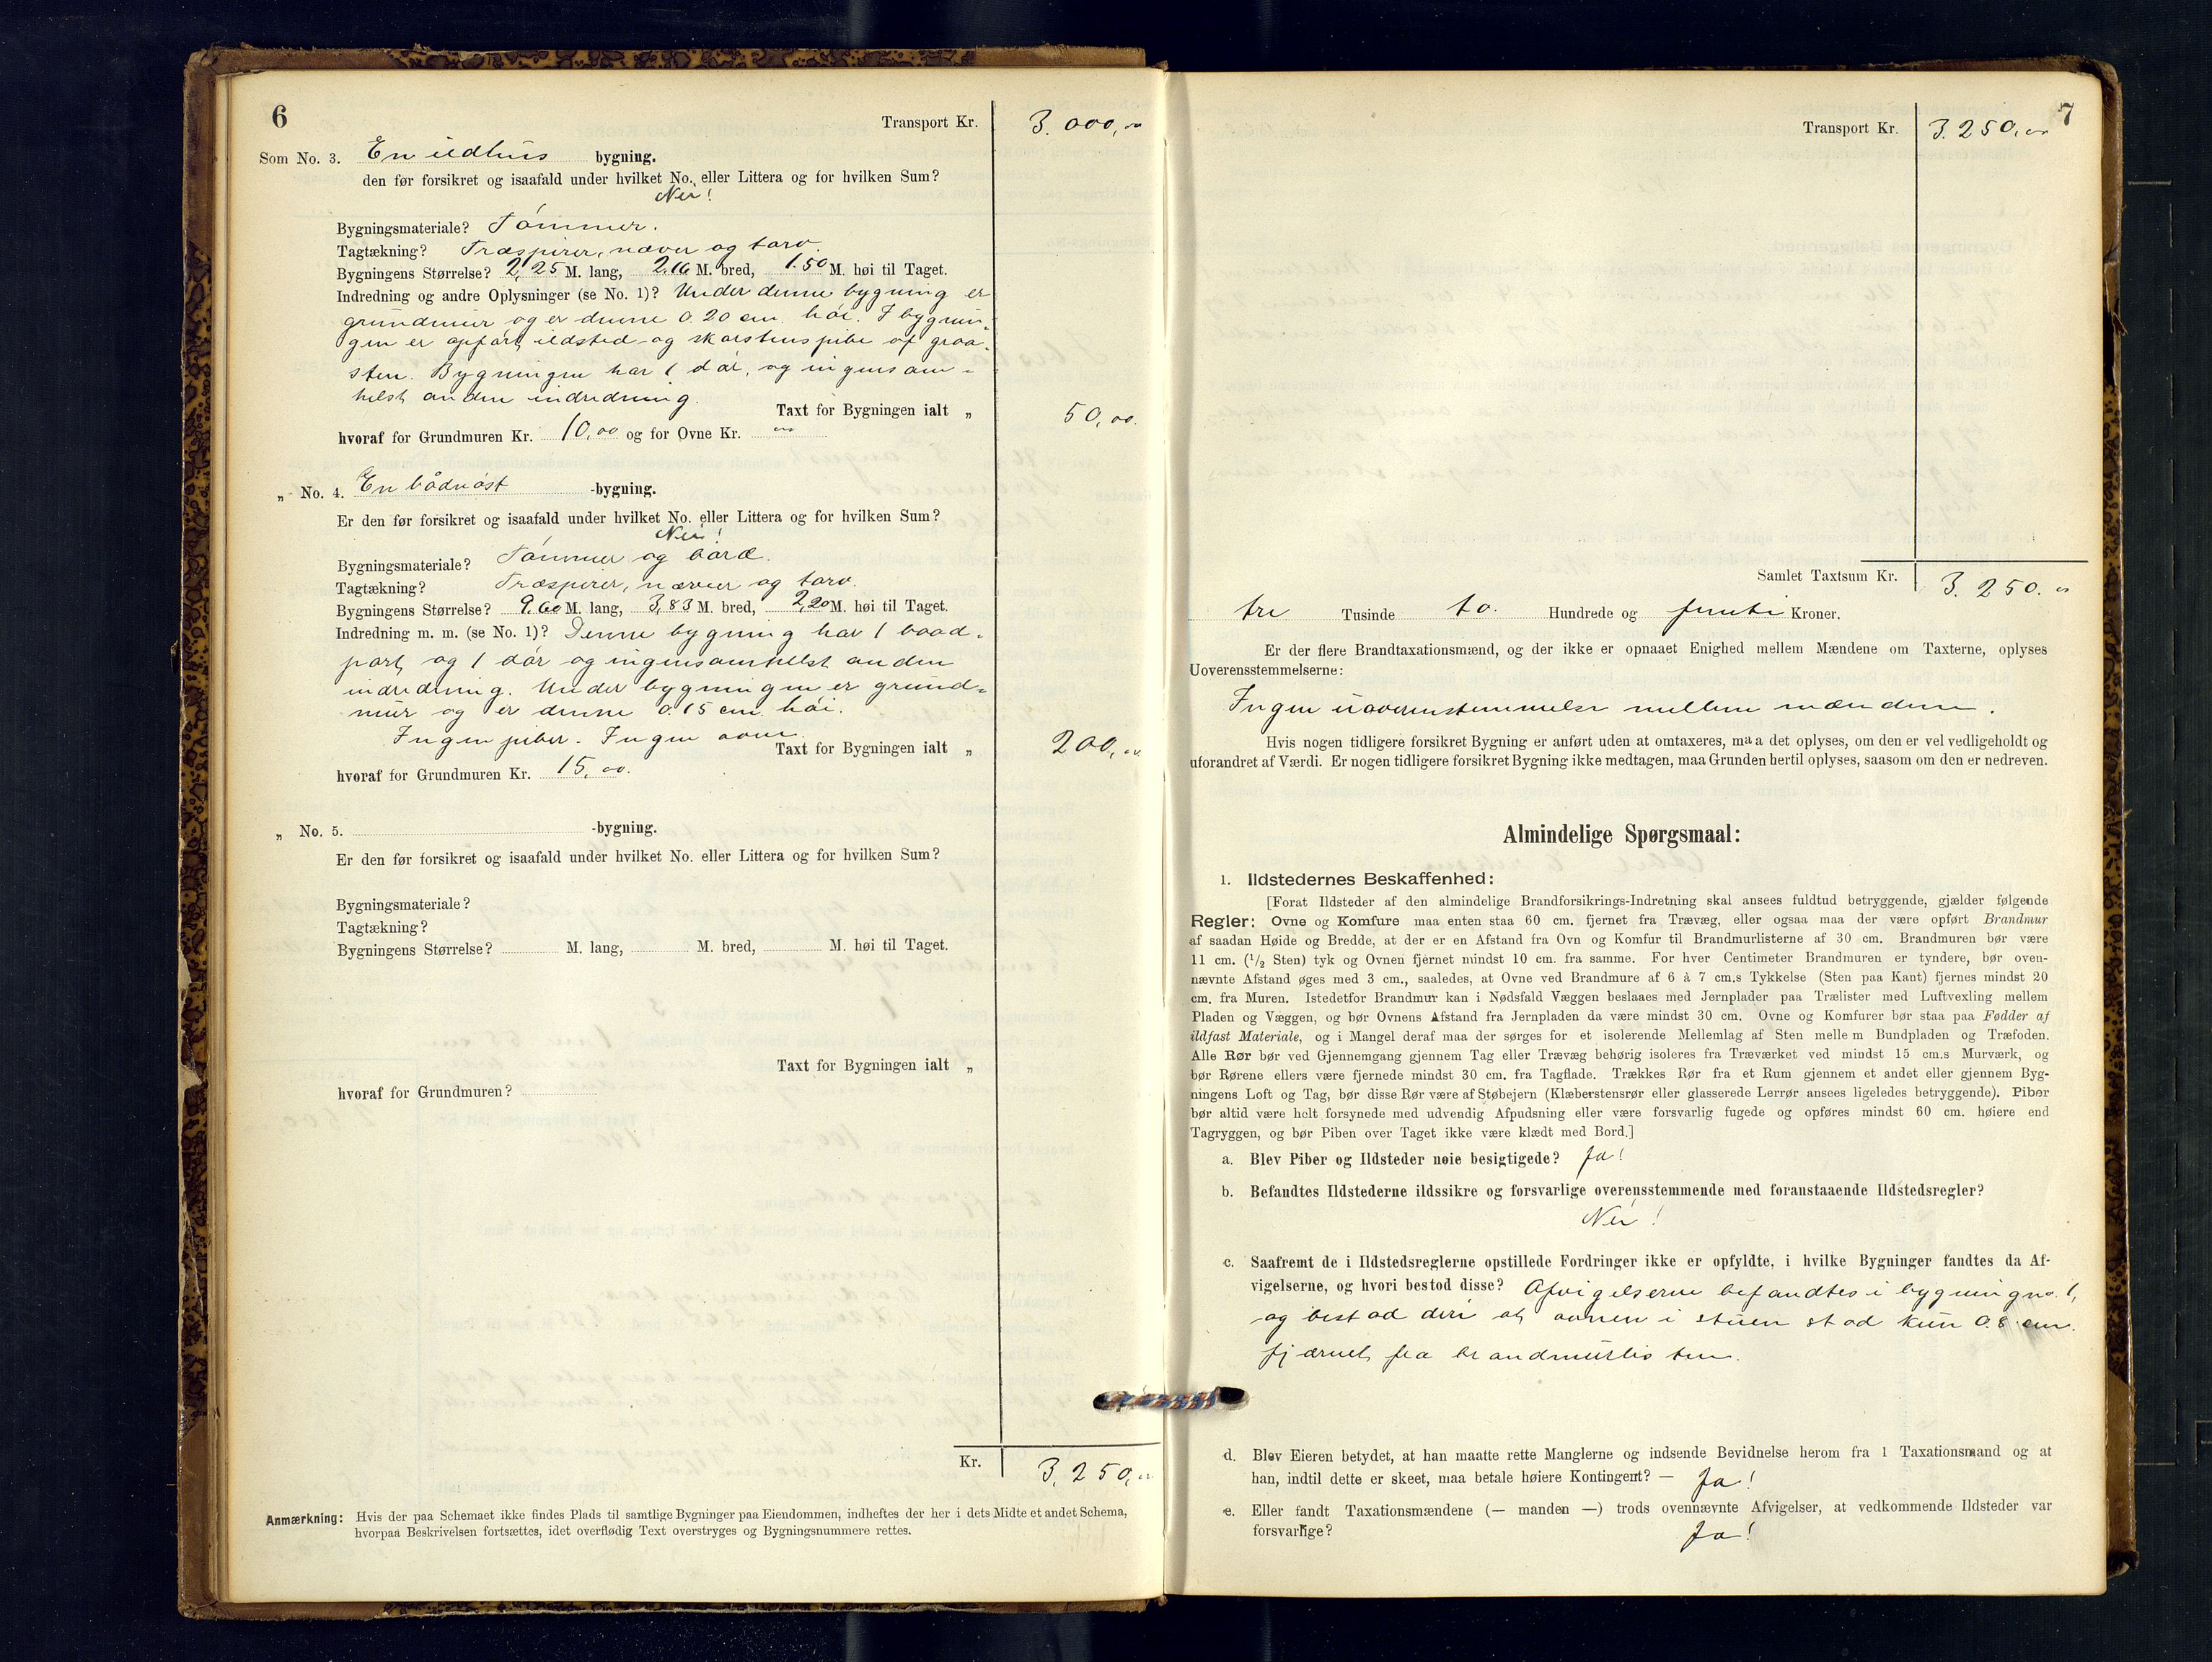 6
Transport Kr. 3.000,00
Som No. 3. En ildhus bygning.
den før forsikret og isaafald under hvilket No. eller Littera og for hvilken Sum?
Nei!
Bygningsmateriale? Tømmer.
Tagtækning? Træspirer, næver og torv.
Bygningens Størrelse? 2,25 M. lang, 2,16 M. bred, 1.50 M. høi til Taget.
Indredning og andre Oplysninger (se No. 1)? Under denne bygning er
grundmur og er denne 0.20 cm. høi. I bygnin-
gen er opført ildsted og skorstenspibe af graa-
sten. Bygningen har 1 dør, og ingensom-
helst anden indredning.
Taxt for Bygningen ialt „ 50,00.
hvoraf for Grundmuren Kr. 10,00 og for Ovne Kr.
„ No. 4. En bådnøst -bygning.
Er den før forsikret og isaafald under hvilket No. eller Littera og for hvilken Sum?
Nei!
Bygningsmateriale? Tømmer og bord.
Tagtækning? Træspirer, næver og torv.
Bygningens Størrelse? 9.60 M. lang, 3,83 M. bred, 2,20 M. høi til Taget.
Indredning m. m. (se No. 1)? Denne bygning har 1 baad-
port og 1 dør og ingensomhelst anden
indredning. Under bygningen er grund-
mur og er denne 0.15 cm. høi.
Ingen piber. Ingen ovne.
Taxt for Bygningen ialt „ 200,00
hvoraf for Grundmuren Kr. 15,00.
„ No. 5. -bygning.
Er den før forsikret og isaafald under hvilket No. eller Littera og for hvilken Sum?
Bygningsmateriale?
Tagtækning?
Bygningens Størrelse? M. lang, M. bred, M. høi til Taget.
Taxt for Bygningen ialt „
hvoraf for Grundmuren?
Kr. 3,250,00
Anmærkning: Hvis der paa Schemaet ikke findes Plads til samtlige Bygninger paa Eiendommen, indheftes der her i dets Midte et andet Schema,
hvorpaa Beskrivelsen fortsættes, idet overflødig Text overstryges og Bygningsnummere rettes.
7
Transport Kr. 3.250,00
Samlet Taxtsum Kr. 3.250.00
tre Tusinde to. Hundrede og femti Kroner.
Er der flere Brandtaxationsmænd, og der ikke er opnaaet Enighed mellem Mændene om Taxterne, oplyses
Uoverensstemmelserne:
Ingen uoverenstemmelse mellem mændene.
Hvis nogen tidligere forsikret Bygning er anført uden at omtaxeres, maa det oplyses, om den er vel vedligeholdt og
uforandret af Værdi. Er nogen tidligere forsikret Bygning ikke medtagen, maa Grunden hertil oplyses, saasom om den er nedreven.
Almindelige Spørgsmaal:
1. Ildstedernes Beskaffenhed:
[Forat Ildsteder af den almindelige Brandforsikrings-Indretning skal ansees fuldtud betryggende, gjælder følgende
Regler: Ovne og Komfure maa enten staa 60 cm. fjernet fra Trævæg, eller ogsaa maa der være opført Brandmur
af saadan Høide og Bredde, at der er en Afstand fra Ovn og Komfur til Brandmurlisterne af 30 cm. Brandmuren bør være
11 cm. (1/2 Sten) tyk og Ovnen fjernet mindst 10 cm. fra samme. For hver Centimeter Brandmuren er tyndere, bør oven-
nævnte Afstand øges med 3 cm., saaledes, at Ovne ved Brandmure af 6 à 7 cm.s Tykkelse (Sten paa Kant) fjernes mindst 20
cm. fra Muren. Istedetfor Brandmur kan i Nødsfald Væggen beslaaes med Jernplader paa Trælister med Luftvexling mellem
Pladen og Væggen, og bør Ovnens Afstand fra Jernpladen da være mindst 30 cm. Ovne og Komfurer bør staa paa Fødder af
ildfast Materiale, og i Mangel deraf maa der sørges for et isolerende Mellemlag af Sten mellem Bundpladen og Træfoden.
Alle Rør bør ved Gjennemgang gjennem Tag eller Trævæg behørig isoleres fra Træværket ved mindst 15 cm.s Murværk, og
bør Rørene ellers være fjernede mindst 30 cm. fra Tagflade. Trækkes Rør fra et Rum gjennem et andet eller gjennem Byg-
ningens Loft og Tag, bør disse Rør være af Støbejern (Klæberstensrør eller glasserede Lerrør ansees ligeledes betryggende). Piber
bør altid være helt forsynede med udvendig Afpudsning eller være forsvarlig fugede og opføres mindst 60 cm. høiere end
Tagryggen, og bør Piben over Taget ikke være klædt med Bord.]
a. Blev Piber og Ildsteder nøie besigtigede? Ja!
b. Befandtes Ildstederne ildssikre og forsvarlige overensstemmende med foranstaaende Ildstedsregler?
Nei!
c. Saafremt de i Ildstedsreglerne opstillede Fordringer ikke er opfyldte, i hvilke Bygninger fandtes da Af-
vigelserne, og hvori bestod disse? Afvigelserne befandtes i bygning no. 1,
og bestod deri at ovnen i stuen stod kun 0.8 cm.
fjærnet fra brandmurlisten.
d. Blev Eieren betydet, at han maatte rette Manglerne og indsende Bevidnelse herom fra 1 Taxationsmand og at
han, indtil dette er skeet, maa betale høiere Kontingent? — Ja!
e. Eller fandt Taxationsmændene (— manden —) trods ovennævnte Afvigelser, at vedkommende Ildsteder var
forsvarlige? Ja!